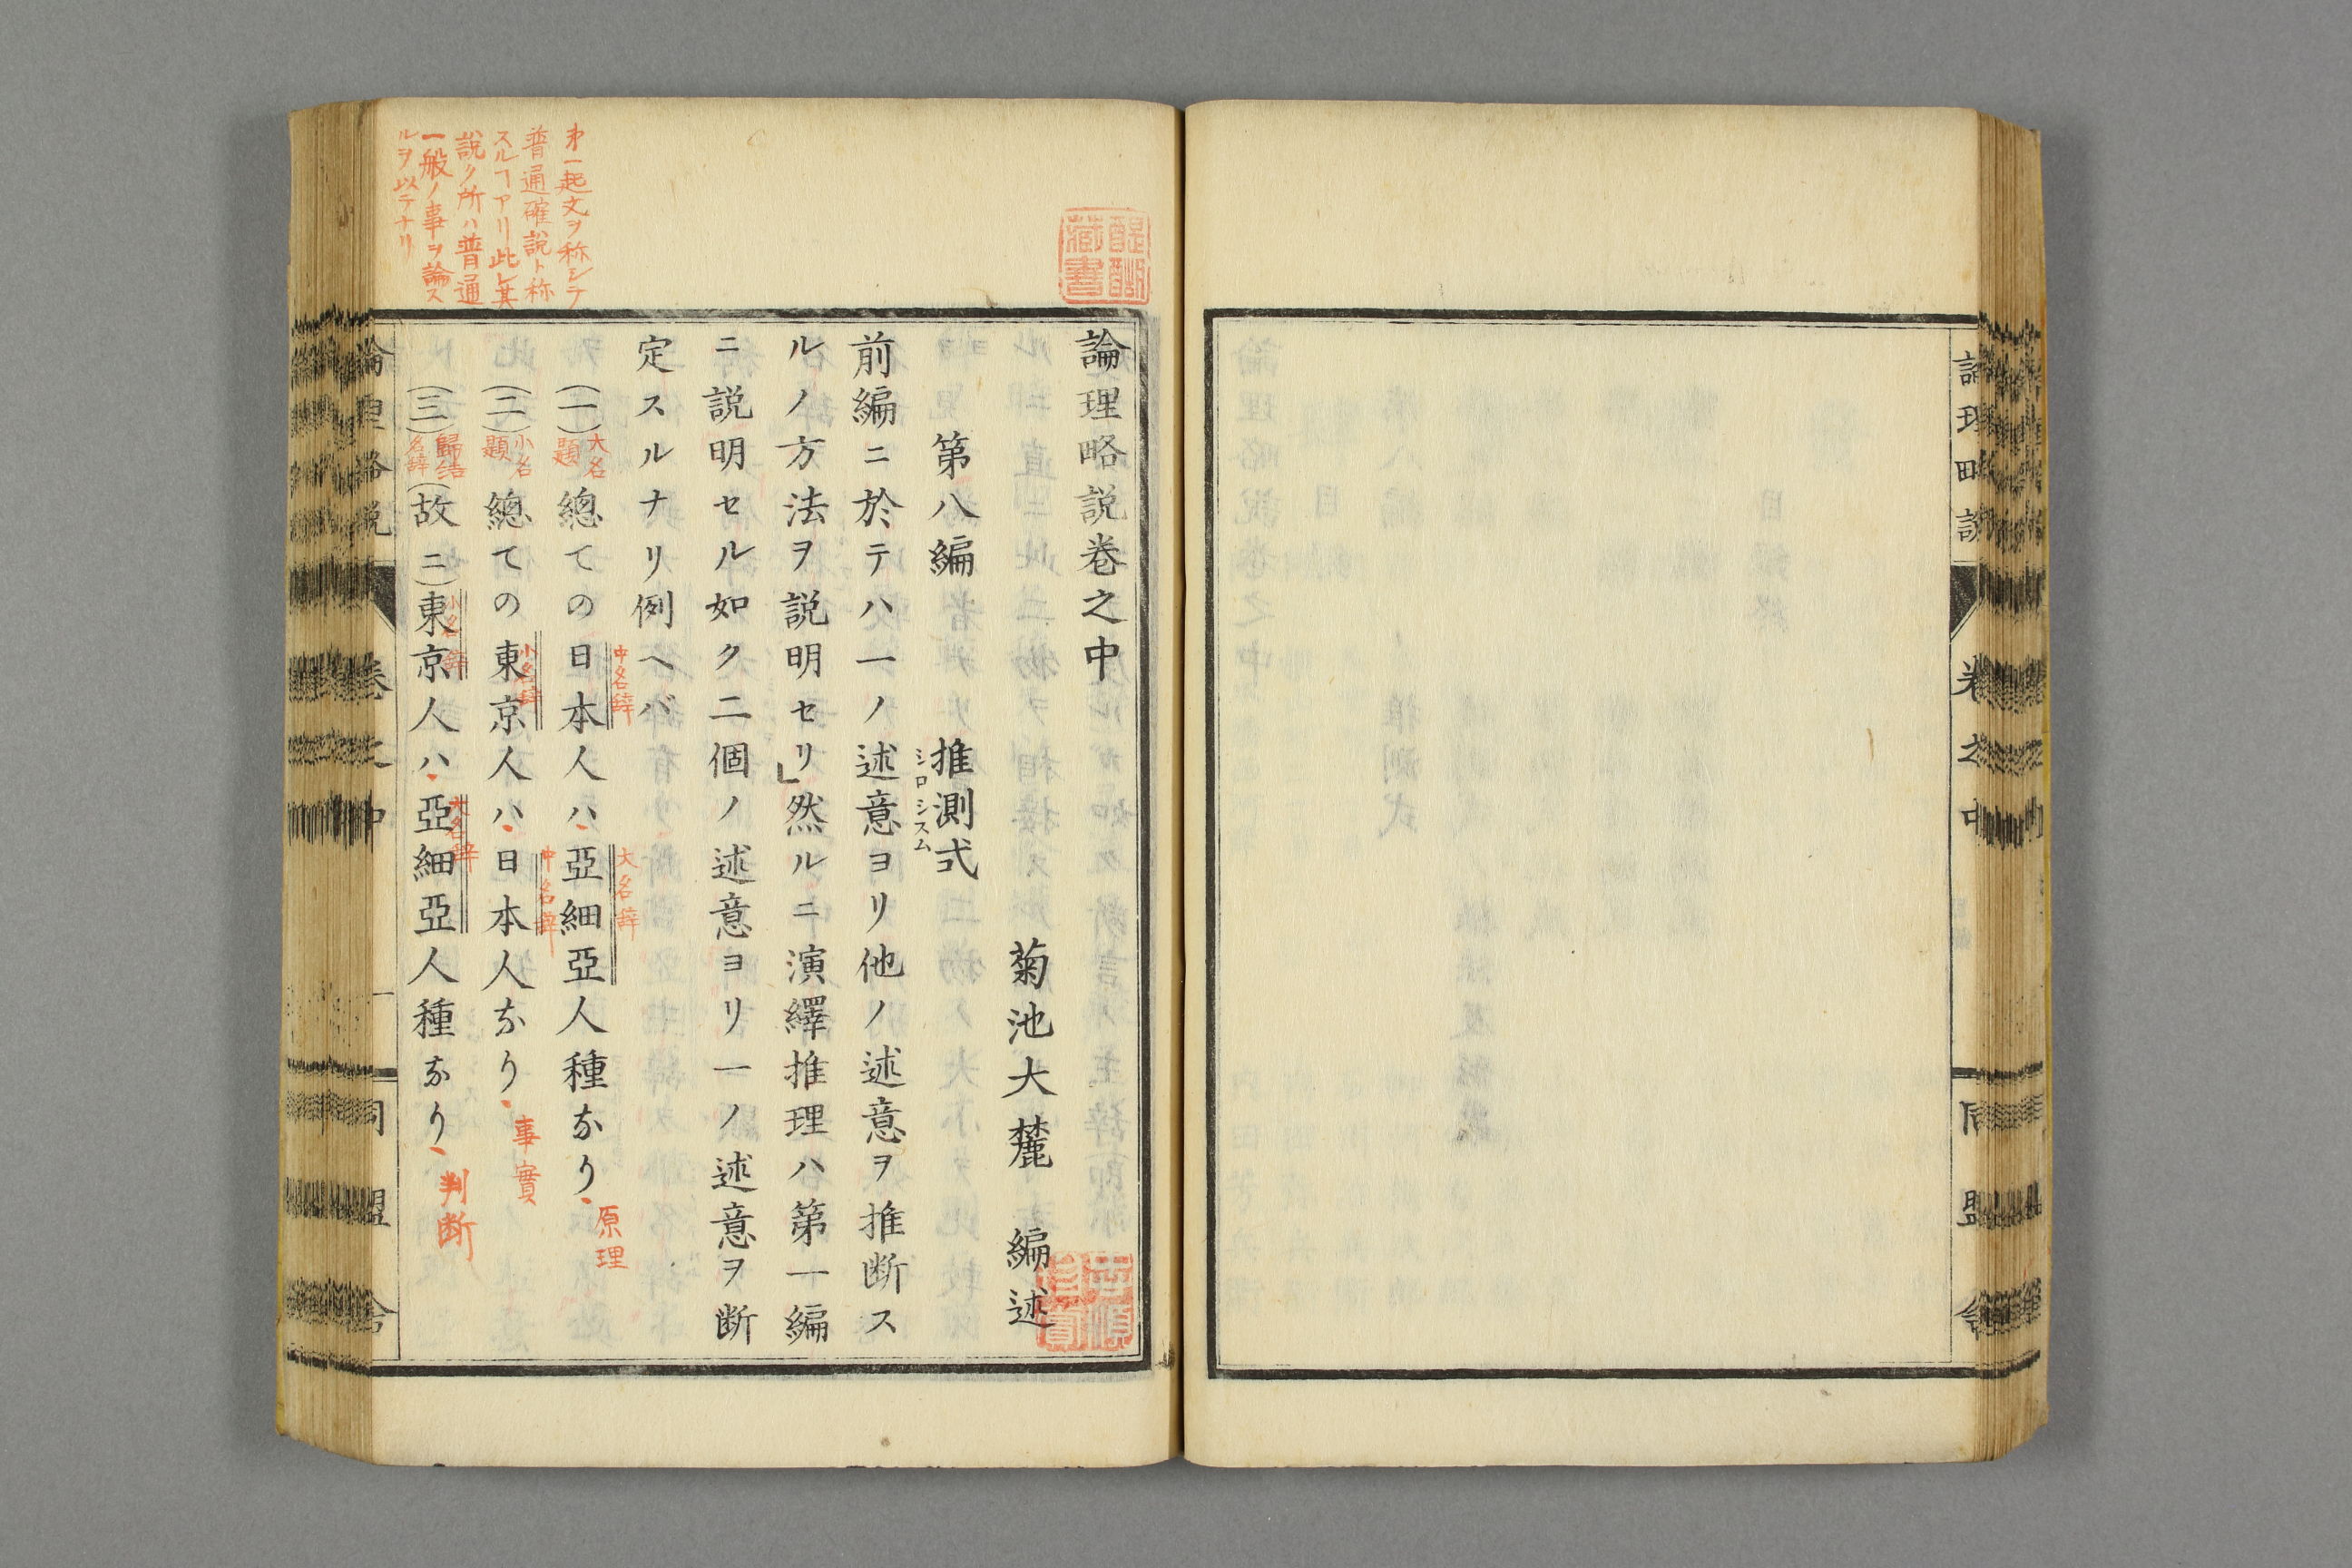 論理略説卷之中
菊池大麓 編述
第八編 推測式
シロシスム
前編ニ於テハ一ノ述意ヨリ他ノ述意ヲ推断ス
ルノ方法ヲ説明セリ」然ルニ演繹推理ハ第一編
ニ説明セル如ク二個ノ述意ヨリ一ノ述意ヲ断
定スルナリ例ヘバ
(一)總ての日本人ハ、亞細亞人種なり、
大名題
中名辞
大名辞
原理
(二)總ての東京人ハ、日本人なり、
小名題
小名辞
中名辞
事實
(三)(故ニ)東京人ハ、亞細亞人種なり、
歸結名辞
小名辞
大名辞
判断
才一起文ヲ称シテ
普通確説ト称
スルヿアリ此レ其
説ク所ハ普通
一般ノ事ヲ論ス
ルヲ以テナリ
論理略説 卷之中 一 同盟舎
論理略説 卷之中 同盟舎
藏書